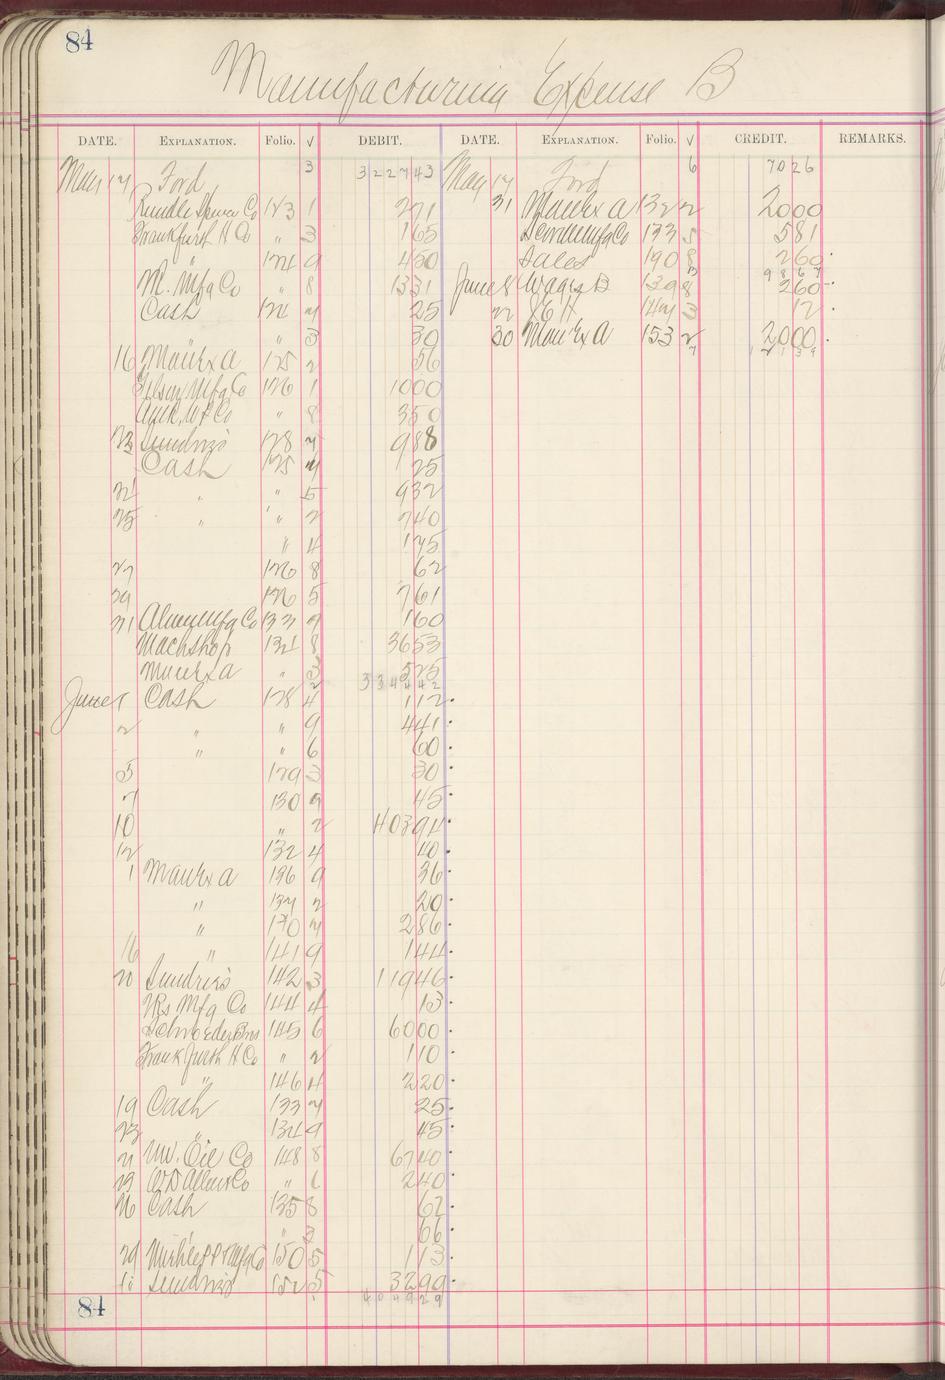 84
Manufacturing Expense B
DATE. EXPLANATION. Folio. √ DEBIT. DATE. EXPLANATION. Folio. √ CREDIT. REMARKS.
May 17 Ford 3 322743 May 17 Ford 6 7026
Rundle Spence Co 123 1 271 31 132 2 2000
Frankfurth H Co " 3 165 133 5 581
" 124 9 450 Sales 190 8 260
M. Mfg Co " 8 1331 9867
June 8 Wages B 139 8 260
Cash 124 7 25 22 J E H 147 3 12
" 3 30 30 153 2 2000
16 125 2 56 12139
Mfg Co 126 1 1000
Co " 8 350
23 Sundries 128 7 988
Cash 125 7 25
22 " " 5 932
25 " " 2 740
" 4 175
27 126 8 62
29 126 5 761
31 Mfg Co 133 7 160
Mach Shop 134 8 3653
" 3 525
2 334442
June 1 Cash 128 4 112
2 " " 9 441
" " 6 60
5 129 3 30
7 130 9 45
10 " 2 40394
12 132 4 40
1 136 9 36
" 137 2 20
" 140 7 286
16 " 141 9 144
20 Sundries 142 3 11946
Mfg Co 144 4 13
Schroeder Bros 145 6 6000
Frankfurth H Co " 2 110
" 146 4 220
19 Cash 133 7 25
23 " 134 9 45
21 Oil Co 148 8 6740
23 W D Allen & Co " 6 240
26 Cash 135 8 62
" 3 66
29 Mfg Co 150 5 113
Sundries 152 5 3299
404929
84